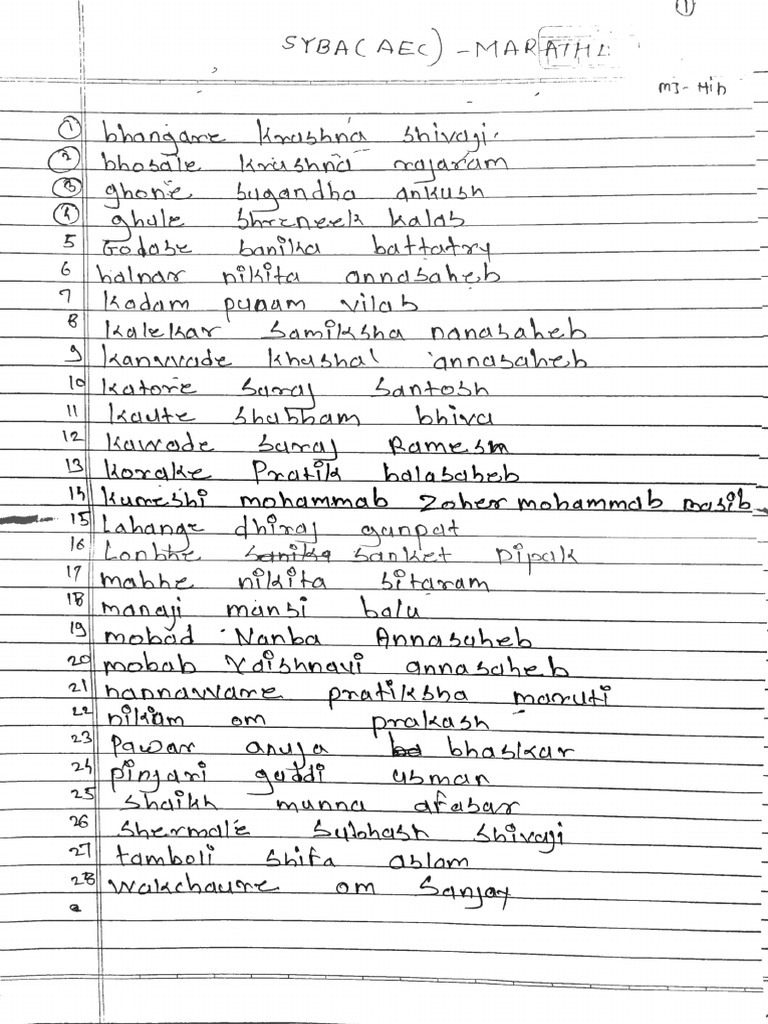 1
SYBA(AEC) - MARATHI
MJ-Hin
1 bhangare krushna shivaji.
2 bhosale krushna rajaram
3 ghone sugandha ankush
4 ghule shreneek kalas
5 Godase sanika battatry
6 halnar nikita annasaheb
7 kadam punam vilas
8 kalekar samiksha nanasaheb
9 kanwade khushal annasaheb
10 katore suraj santosh
11 kaute shabham bhiva
12 kawade suraj Ramesh
13 korake Pratik balasaheb
14 kureshi mohammab zoher mohammab masib
15 Lahange dhiraj ganpat
16 Lonbhe sanika sanket Dipak
17 mabhe nikita sitaram
18 manaji mansi balu
19 mobad Nanba Annasaheb
20 mobab Vaishnavi annasaheb
21 nannaware pratiksha maruti
22 nikam om prakash
23 Pawar anuja bhaskar
24 pinjari guddi usman
25 shaikh munna afasar
26 shermale subhash shivaji
27 tamboli shifa aslam
28 wakchaure om Sanjay